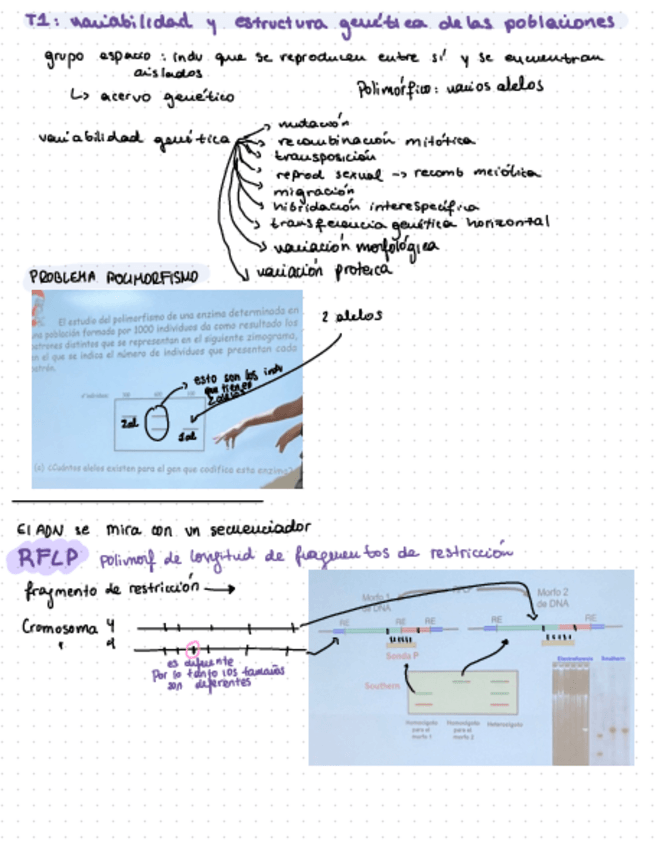 T1: variabilidad y estructura genética de las poblaciones
grupo espacio: indv que se reproducen entre sí y se encuentran
aislados
Polimórfico: varios alelos
↳ acervo genético
variabilidad genética
mutación
recombinación mitótica
transposición
reprod sexual -> recomb meiótica
migración
hibridación interespecífica
transferencia genética horizontal
variación morfológica
variación proteica
PROBLEMA POLIMORFISMO
2 alelos
El estudio del polimorfismo de una enzima determinada en
una población formada por 1000 individuos da como resultado los
patrones distintos que se representan en el siguiente zimograma,
en el que se indica el número de individuos que presentan cada
patrón.
esto son los indv
que tienen
2 alelos
1al
(a) ¿Cuántos alelos existen para el gen que codifica esta enzima?
El ADN se mira con un secuenciador
RFLP polimorf de longitud de fragmentos de restricción
fragmento de restricción →
Cromosoma 4
es diferente
Por lo tanto los tamaños
son diferentes
Morfo 1
de DNA
Morfo 2
de DNA
RE RE RE
RE RE
Sonda P
Southern
Electroforesis Southern
Homocigoto para el morfo 1
Homocigoto para el morfo 2
Heterocigoto